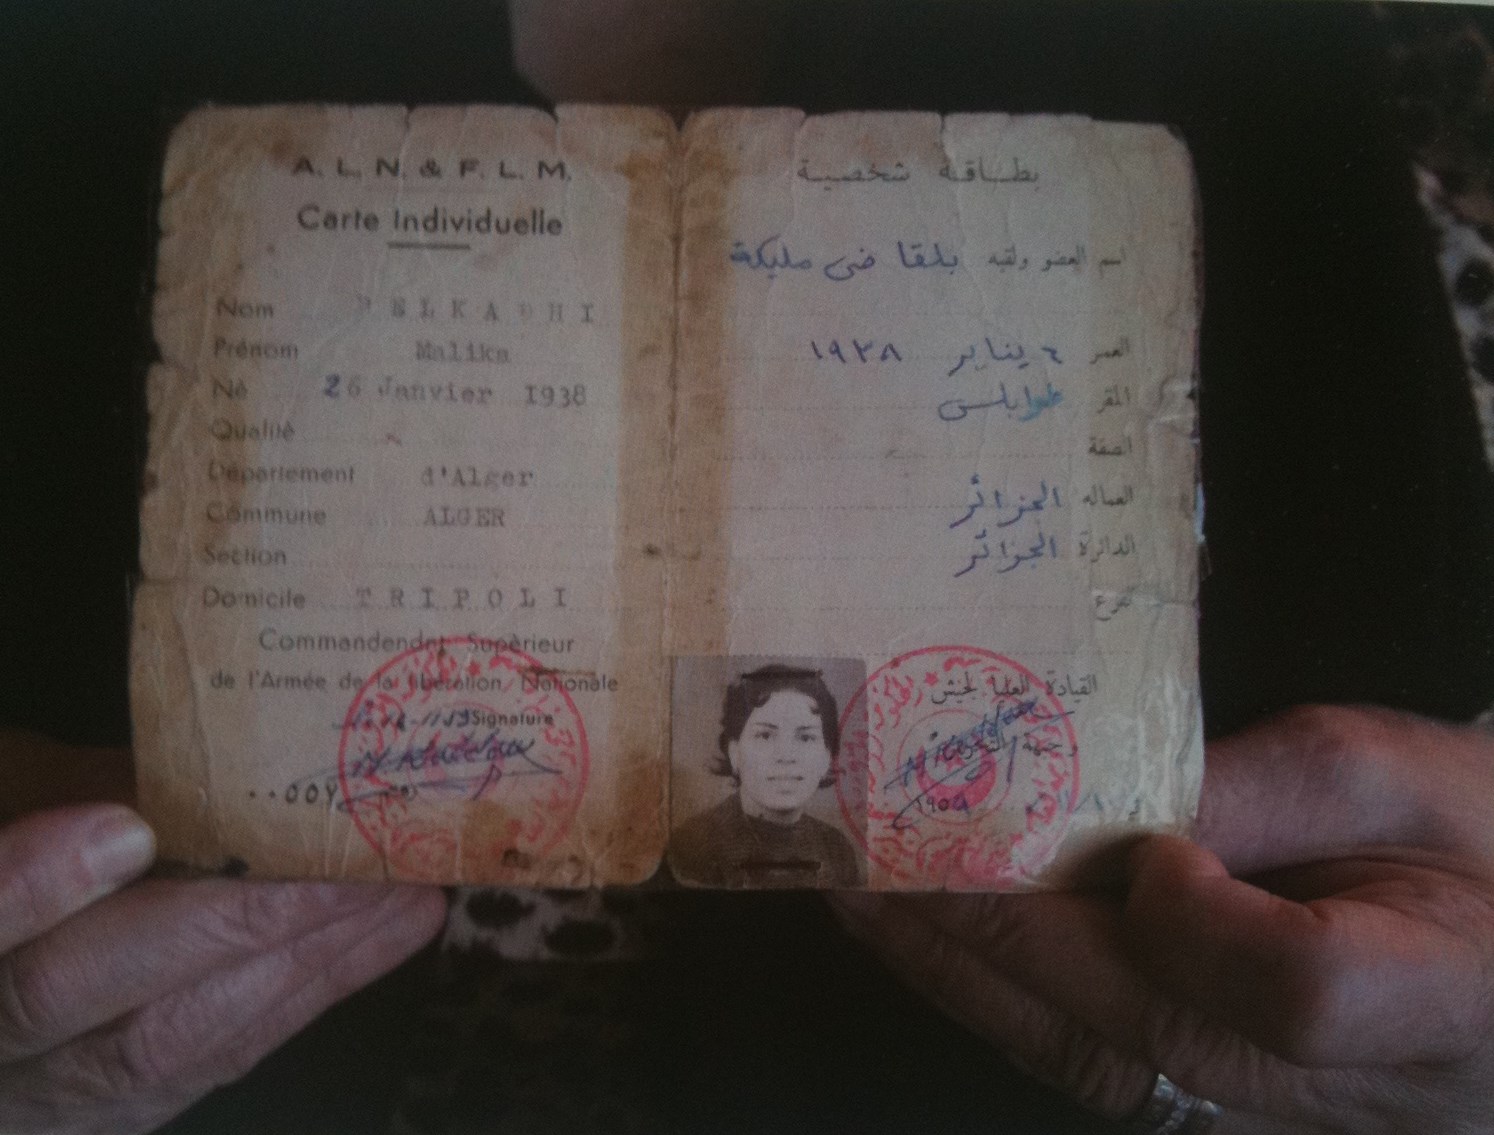 A. L. N. & F. L. M.
Carte Individuelle
Nom BELKADHI
Prénom Malika
Né 26 Janvier 1938
Qualité
Département d'Alger
Commune ALGER
Section
Domicile TRIPOLI
Commandendnt Supèrieur
de l'Armée de la libération Nationale
Signature
بطاقة شخصية
اسم العضو ولقبه بلقاضى مليكة
العمر ٢٦ يناير ١٩٣٨
المقر طرابلس
الصفة
العماله الجزائر
الدائرة الجزائر
القيادة العليا لجيش
وجبهة التحرير